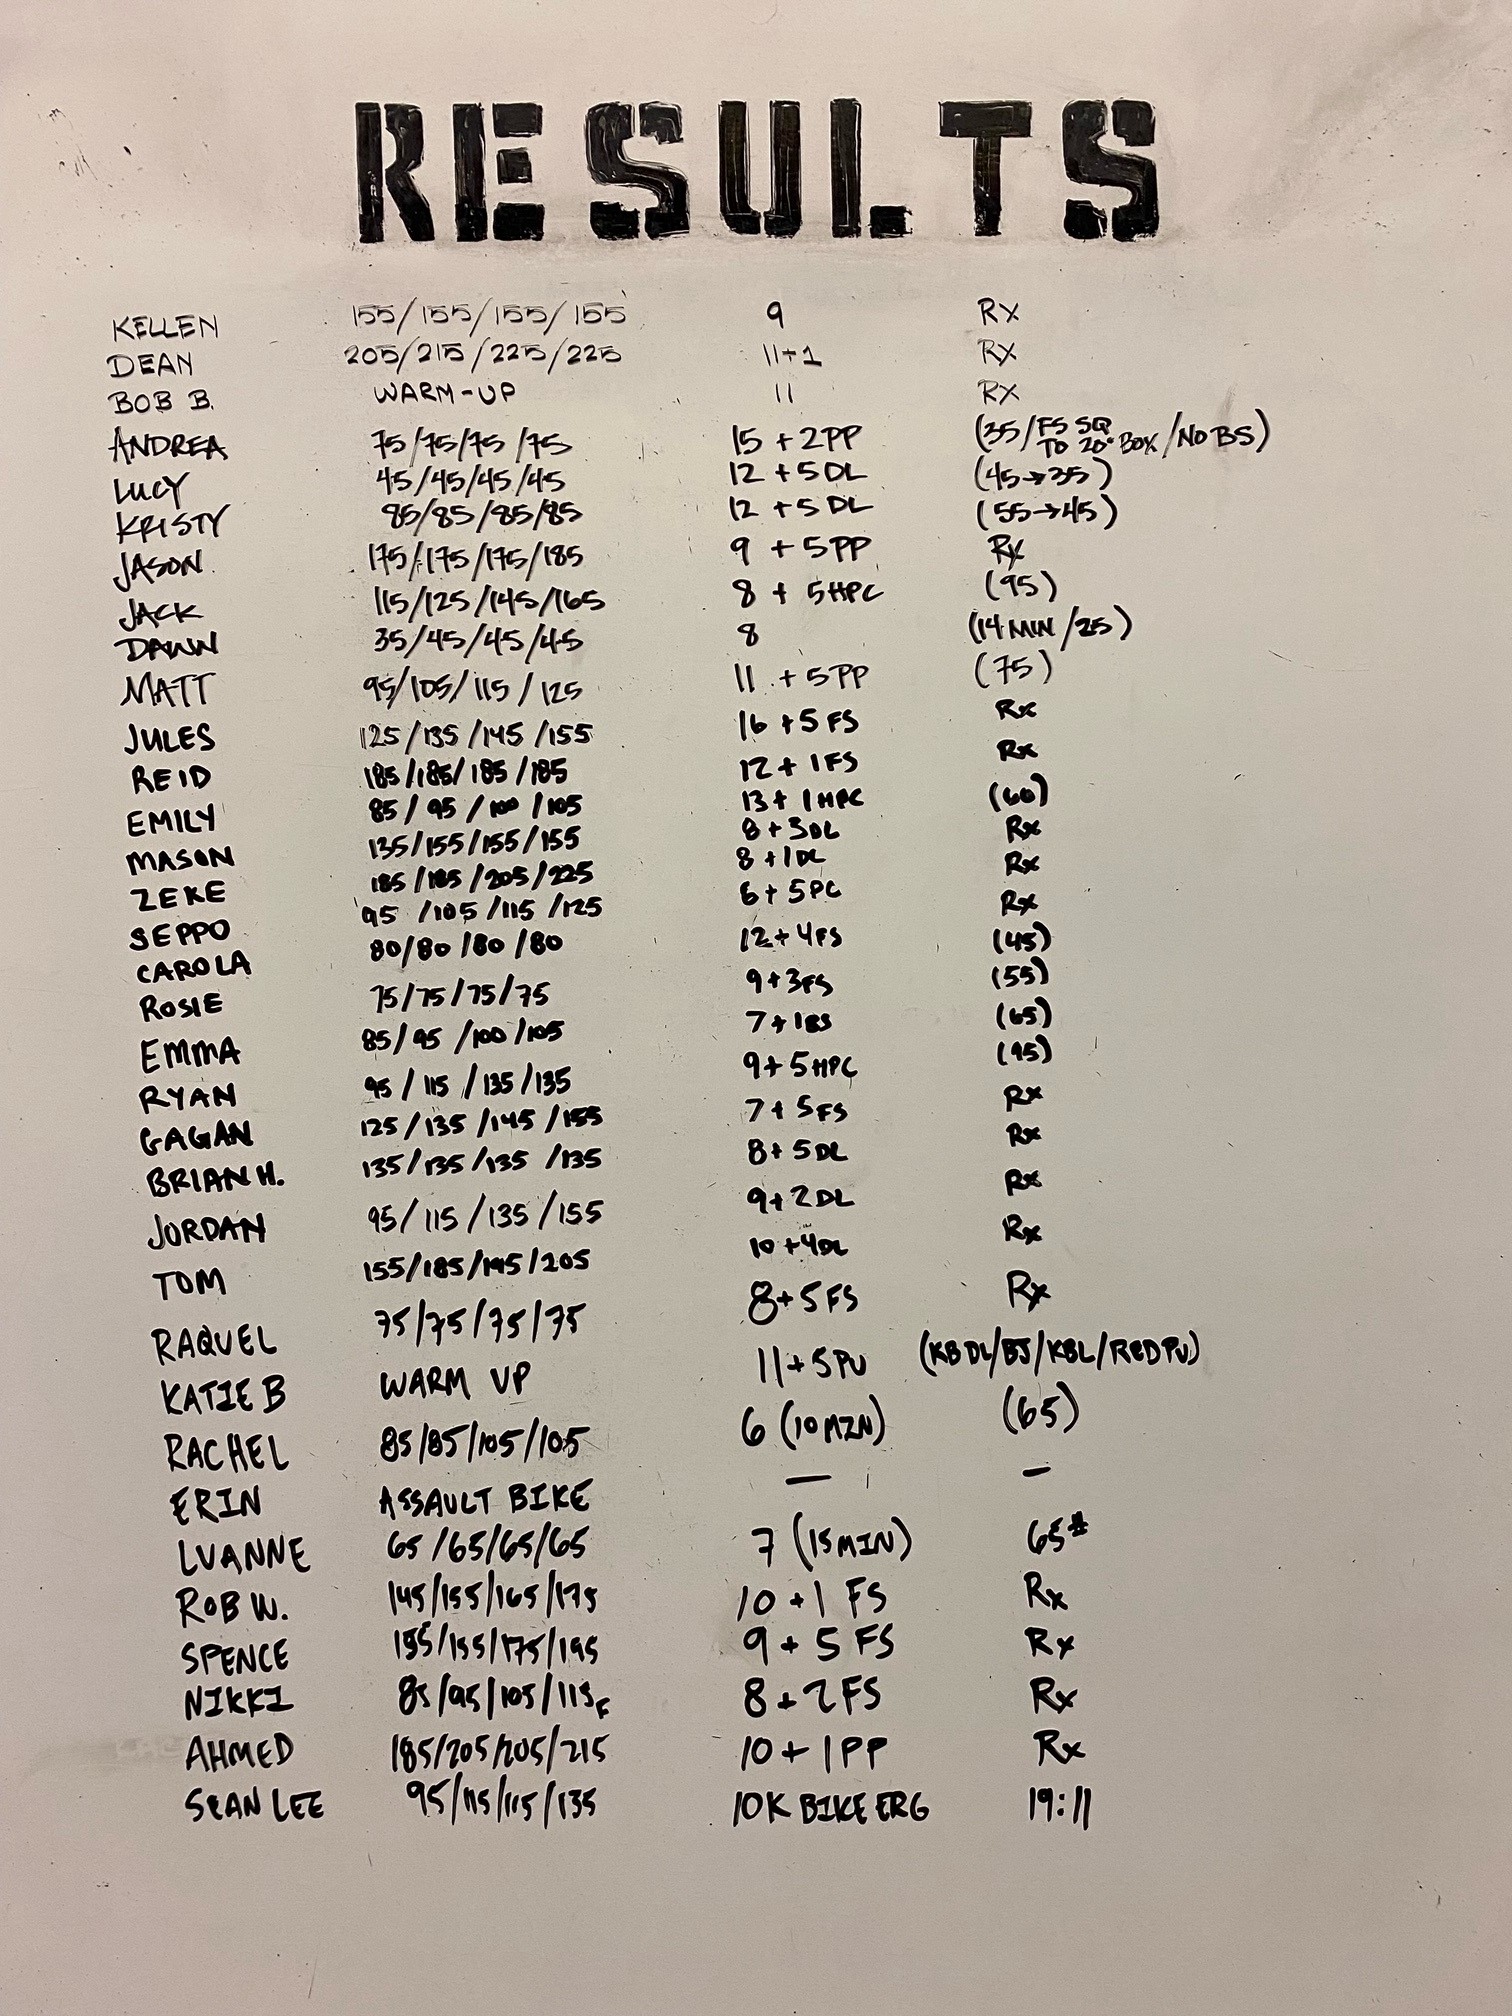 RESULTS
KELLEN 155/155/155/155 9 Rx
DEAN 205/215/225/225 11+1 Rx
BOB B. WARM-UP 11 Rx
ANDREA 75/75/75/75 15 + 2PP (35/FS SQ TO 20" BOX/NO BS)
LUCY 45/45/45/45 12 + 5DL (45→35)
KRISTY 85/85/85/85 12 + 5 DL (55→45)
JASON 175/175/175/185 9 + 5PP Rx
JACK 115/125/145/165 8 + 5HPC (95)
DAWN 35/45/45/45 8 (14 MIN/25)
MATT 95/105/115/125 11 + 5PP (75)
JULES 125/135/145/155 16 + 5 FS Rx
REID 185/185/185/185 12 + 1FS Rx
EMILY 85/95/100/105 13 + 1HPC (60)
MASON 135/155/155/155 8 + 3DL Rx
ZEKE 185/185/205/225 8 + 1DL Rx
SEPPO 95/105/115/125 6 + 5PC Rx
CAROLA 80/80/80/80 12 + 4FS (45)
ROSIE 75/75/75/75 9 + 3FS (55)
EMMA 85/95/100/105 7 + 1BS (65)
RYAN 95/115/135/135 9 + 5HPC (95)
GAGAN 125/135/145/155 7 + 5FS Rx
BRIAN H. 135/135/135/135 8 + 5DL Rx
JORDAN 95/115/135/155 9 + 2DL Rx
TOM 155/185/195/205 10 + 4DL Rx
RAQUEL 75/75/75/75 8 + 5 FS Rx
KATIE B WARM UP 11 + 5PU (KB DL/BJ/KBL/RED PU)
RACHEL 85/85/105/105 6 (10 MIN) (65)
ERIN ASSAULT BIKE — —
LUANNE 65/65/65/65 7 (15 MIN) 65#
ROB W. 145/155/165/175 10 + 1 FS Rx
SPENCE 155/155/175/195 9 + 5 FS Rx
NIKKI 85/95/105/115F 8 + 2 FS Rx
AHMED 185/205/205/215 10 + 1 PP Rx
SEAN LEE 95/115/115/135 10K BIKE ERG 19:11